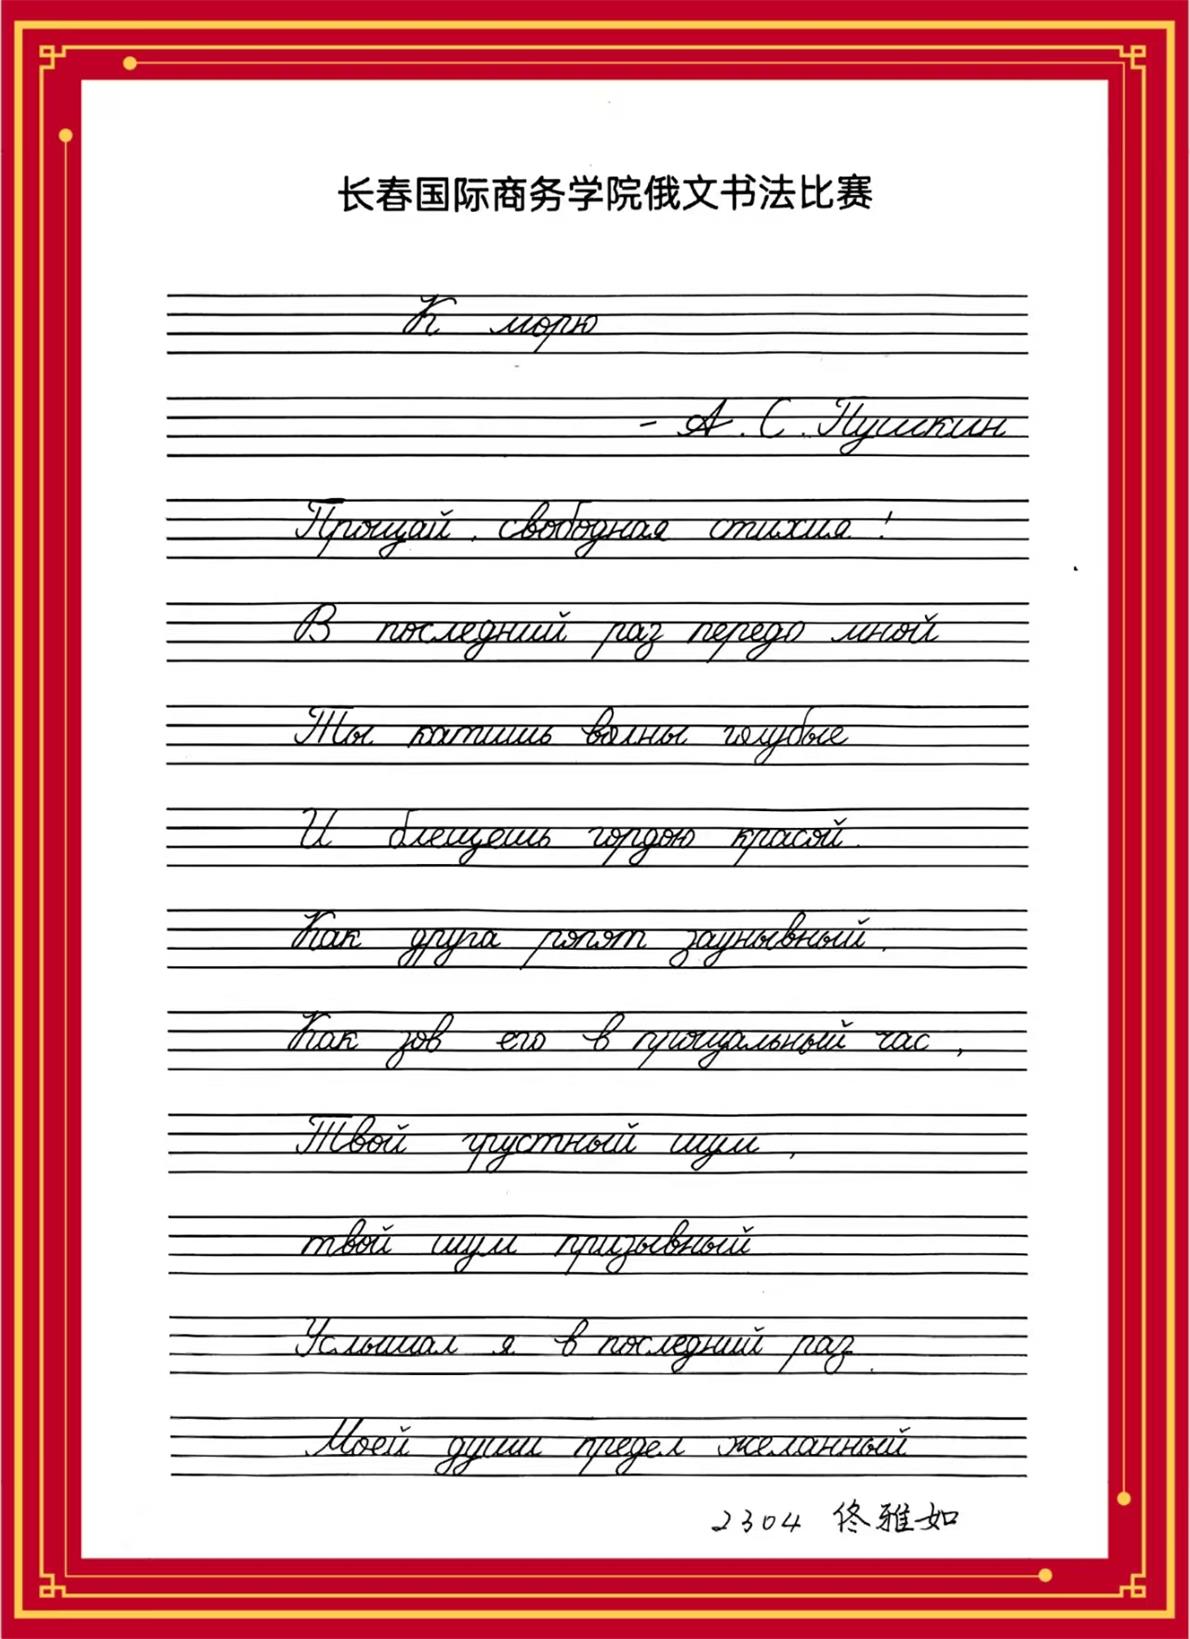 长春国际商务学院俄文书法比赛
К морю
- А. С. Пушкин
Прощай, свободная стихия!
В последний раз передо мной
Ты катишь волны голубые
И блещешь гордою красой.
Как друга ропот заунывный.
Как зов его в прощальный час,
Твой грустный шум,
твой шум призывный
Услышал я в последний раз.
Моей души предел желанный
2304 佟雅如